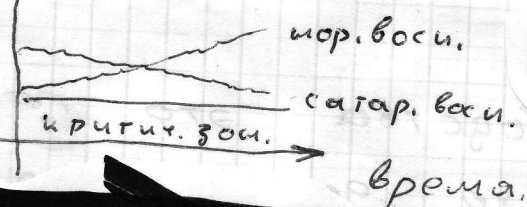 нор. восп.
сатар. восп.
критич. зон.
время.